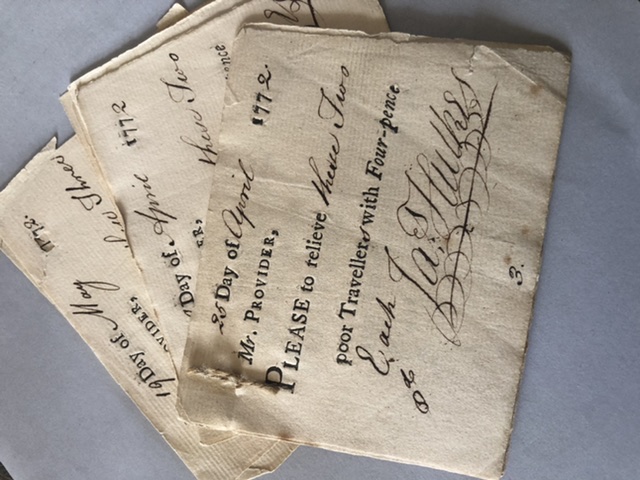 25 Day of April 1772.
Mr. PROVIDER,
PLEASE to relieve these Two
poor Travellers with Four-pence
Each
8d
3.
Day of April 1772
ER,
these Two
ence
19 Day of May 1772.
OVIDER,
Three